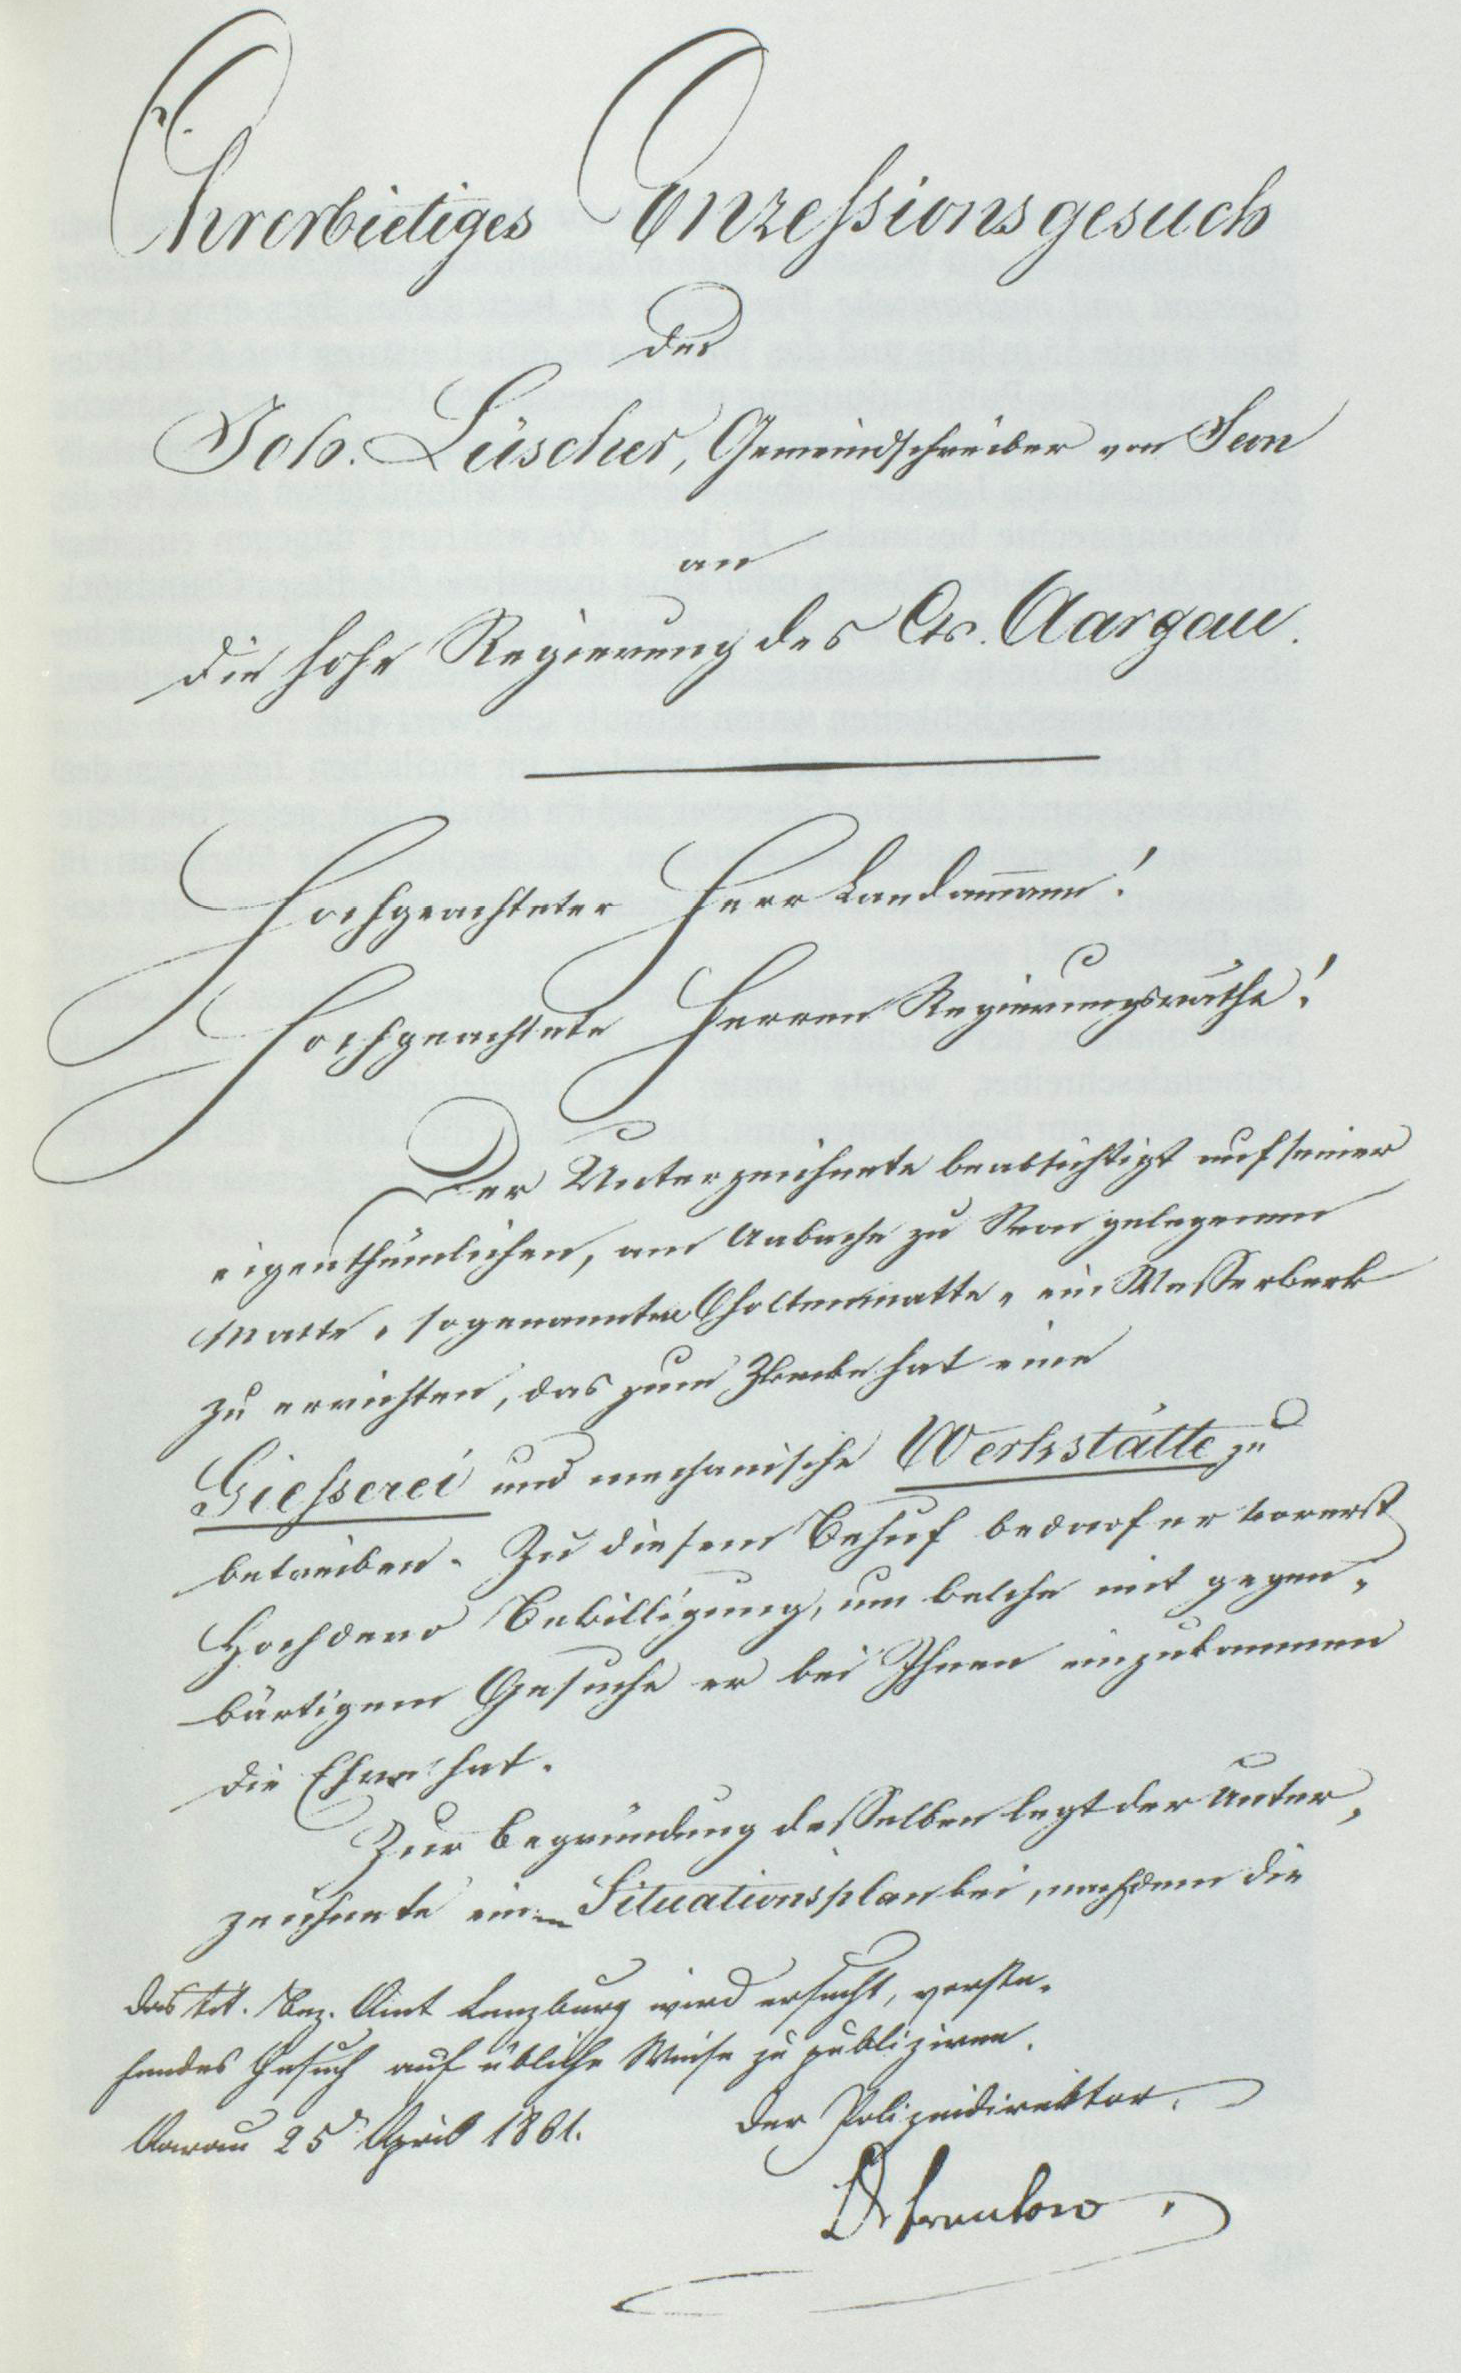 Ehrerbietiges Conzessionsgesuch
des
Joh. Lüscher, Gemeindschreiber von Seon
an
die hohe Regierung des Cts. Aargau.
Hochgeachteter Herr Landammann!
Hochgeachtete Herren Regierungsräthe!
Der Unterzeichnete beabsichtigt auf seiner
eigenthümlichen, am Aabache zu Seon gelegenen
Matte, sogenannten Scholtenmatte, ein Wasserwerk
zu errichten, das zum Zwecke hat eine
Giesserei und mechanische Werkstätte zu
betreiben. Zu diesem Behuf bedarf er vorerst
Hochdero Bewilligung, um welche mit gegen-
wärtigem Gesuche er bei Ihnen einzukommen
die Ehre hat.
Zur Begründung desselben legt der Unter-
zeichnete einen Situationsplan bei, nachdem die
Das tit. Bez. Amt Lenzburg wird ersucht, vorste-
hendes Gesuch auf übliche Weise zu publiziren.
Aarau 25 April 1861. Der Polizeidirektor.